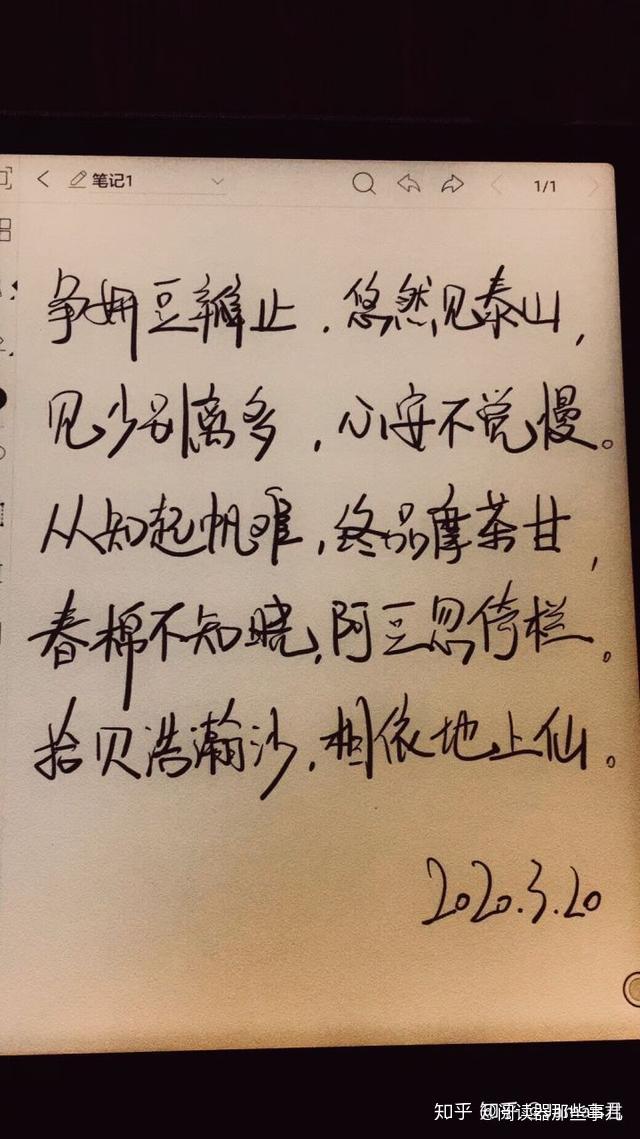 笔记1
1/1
争妍豆瓣止，悠然见泰山，
见少别离多，心安不觉慢。
从知起帆难，终品摩茶甘，
春棉不知晓，阿豆忽倚栏。
拾贝浩瀚沙，相依地上仙。
2020.3.20
知乎 @阅读器那些事儿